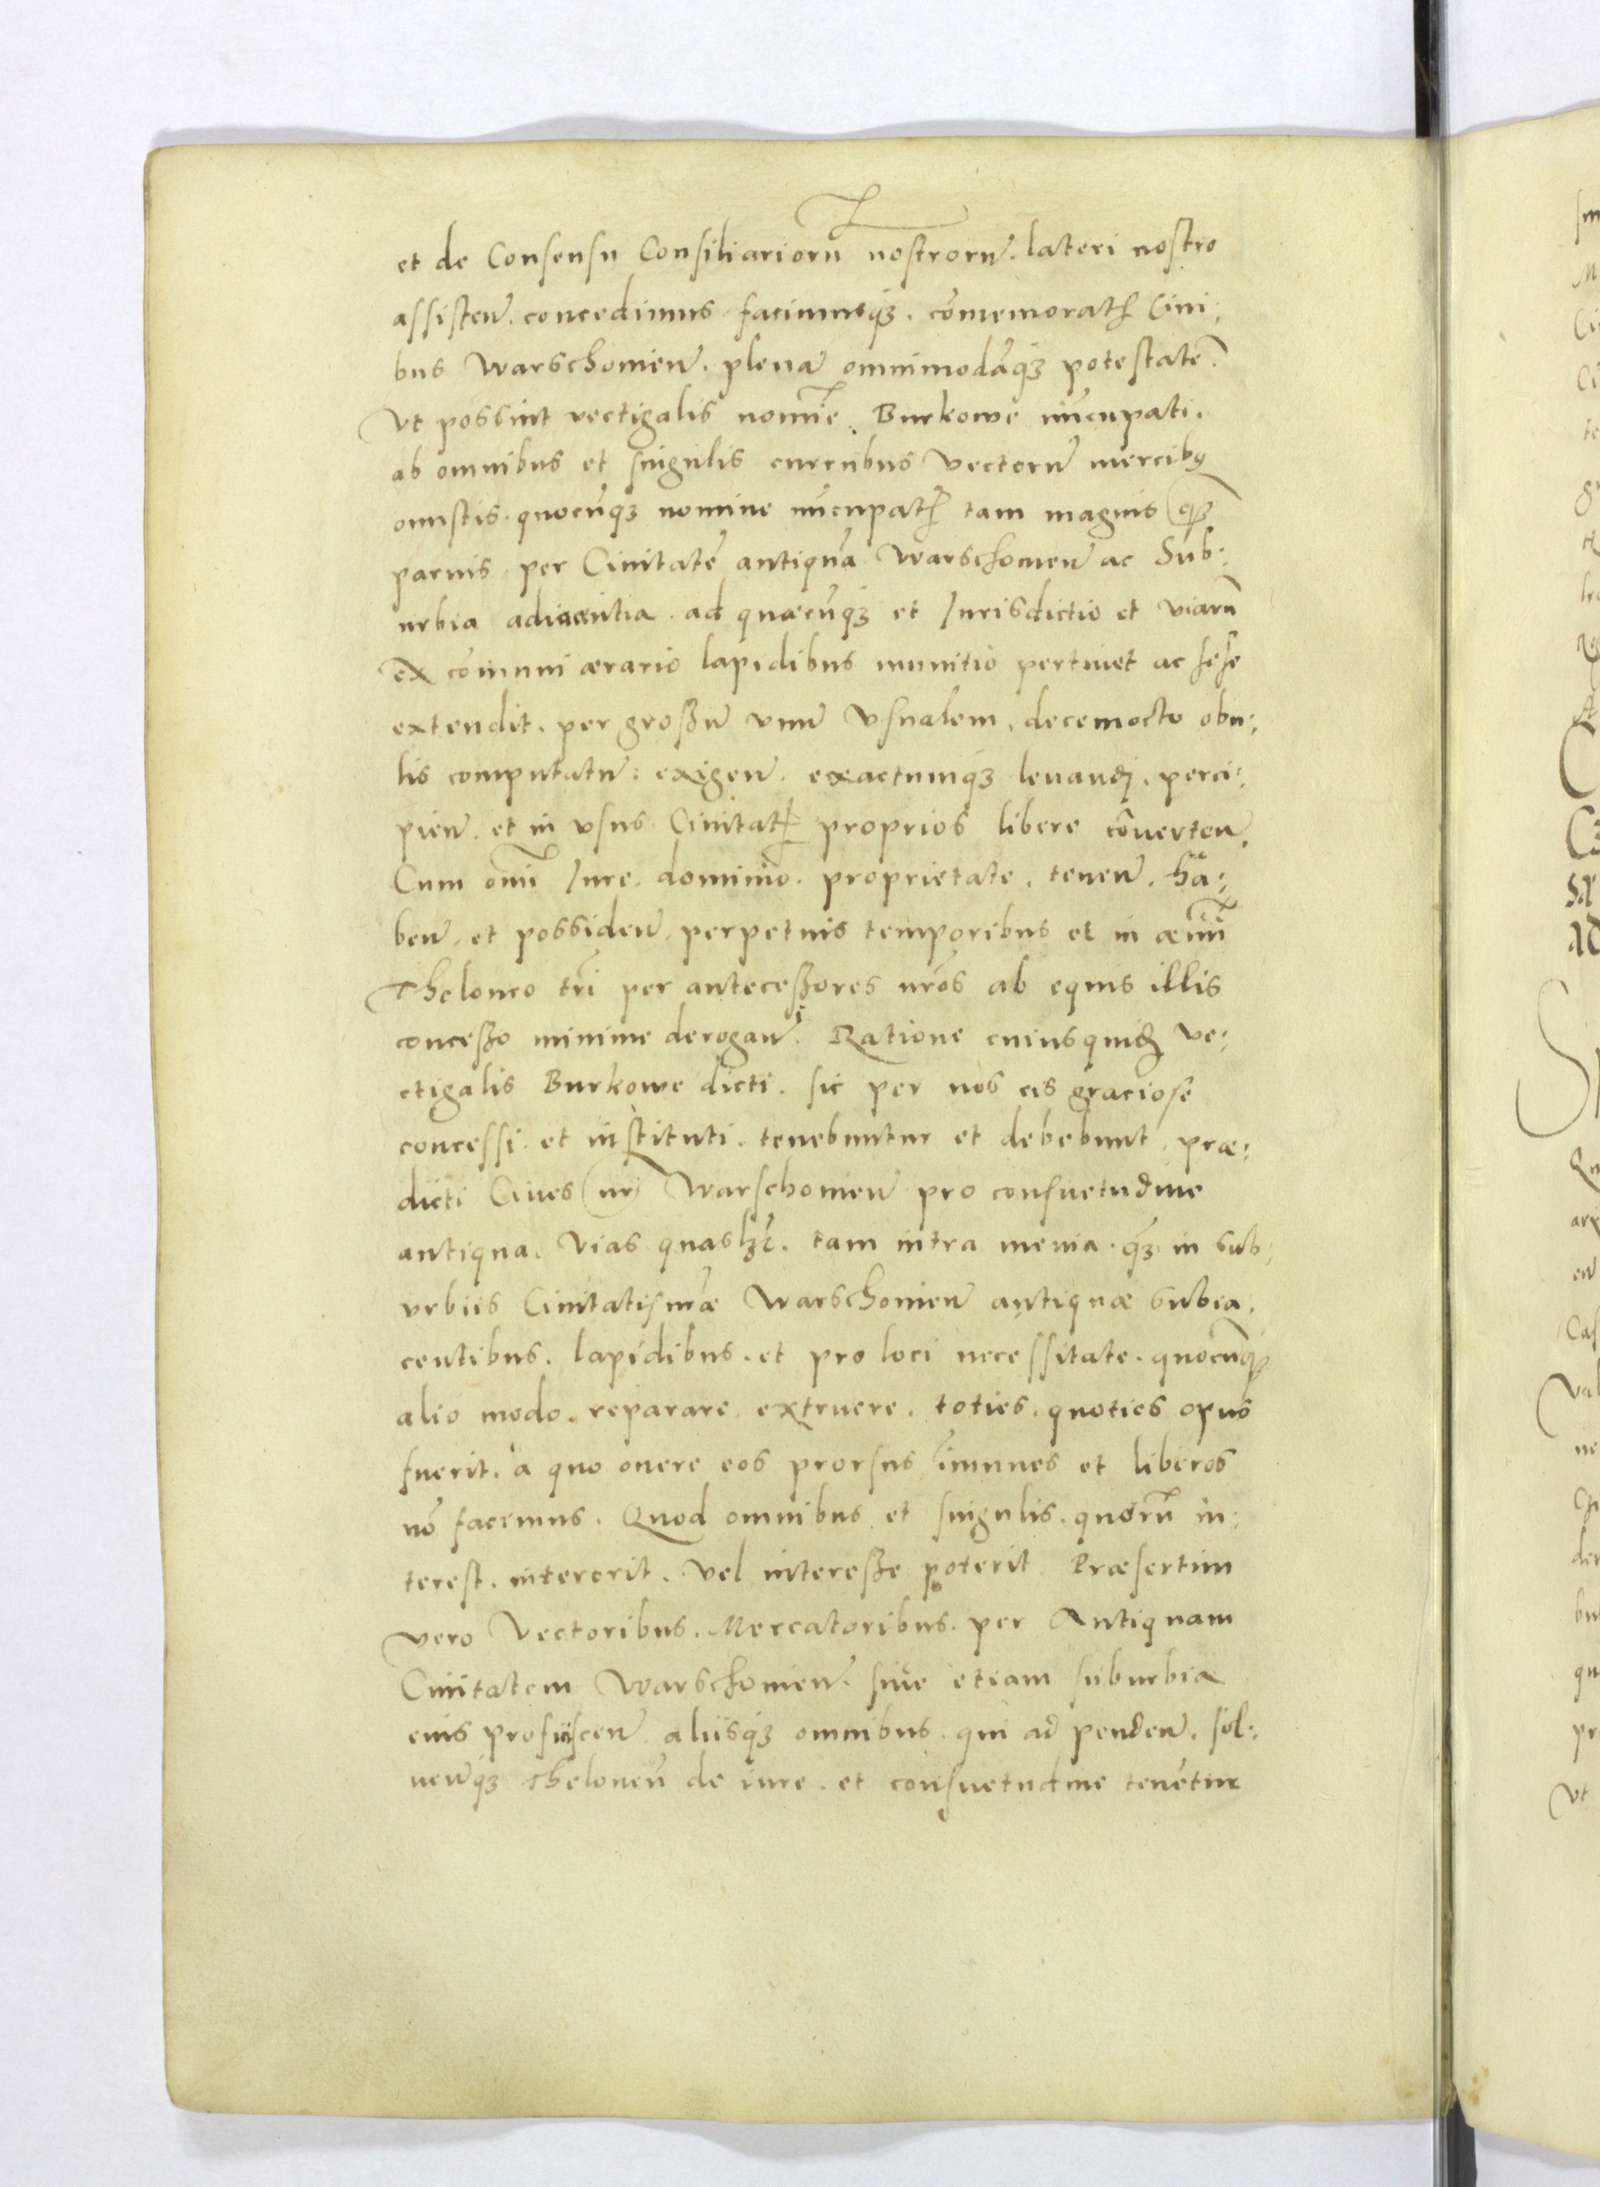 et de Consensu Consiliarioru nostroru. lateri nostro
assisten. concedimus facimusqȝ. cōmemoratꝭ Ciui:
bus Warschouien. plenā omnimodāqȝ potestatē.
Vt possint vectigalis nomīe Burkowe nūcupati.
ab omnibus et singulis curribus vectorū mercibꝰ
onustis. quocūqȝ nomine nūcupatꝭ tam magnis qȝ
paruis per Ciuitatē antiquā Warschouien ac Sub:
urbia adiacentia. ad quaecūqȝ et Jurisdictio et viarū
ex cōmuni ærario lapidibus munitio pertinet ac sese
extendit. per großū vnū vsualem. decemocto obu:
lis computatū: exigen. exactumqȝ leuandi. perci:
pien. et in vsus Ciuitatꝭ proprios libere cōuerten.
Cum omī Jure. dominio. proprietate. tenen. ha:
ben. et possiden. perpetuis temporibus et in æuū
Theloneo tn̄ per anteceßores nr̄os ab equis illis
conceßo minime derogan. Ratione cuiusquidē ve:
ctigalis Burkowe dicti. sic per nos eis graciose
concessi et instituti. tenebuntur et debebunt præ:
dicti Ciues nri Warschouien pro consuetudine
antiqua. Vias quaslȝt. tam intra menia. qȝ in sub:
vrbiis Ciuitatis nr̄æ Warschouien antiquæ subia.
centibus. lapidibus. et pro loci necessitate. quocunqȝ
alio modo. reparare. extruere. toties. quoties opus
fuerit. a quo onere eos prorsus īmunes et liberos
nō facimus. Quod omnibus et singulis. quorū in:
terest. intererit. vel intereße poterit Præsertim
vero Vectoribus. Mercatoribus. per Antiquam
Ciuitatem Warschouien. siue etiam suburbia
eius profiiscen aliisqȝ omnibus. qui ad penden. sol:
uenqȝ Theloneū de iure. et consuetudine tenētur